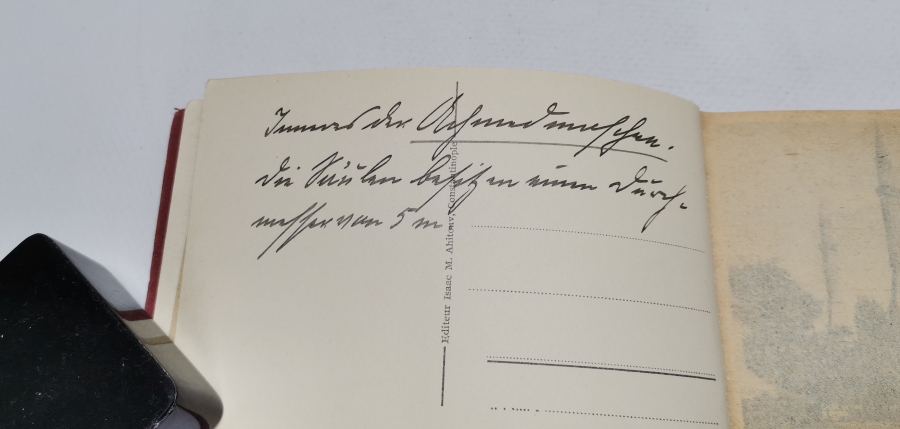 Inneres der Achmedmoschee.
Die Säulen besitzen einen Durch-
messer von 5 m.
Editeur Isaac M. Ahitouv, Constantinople